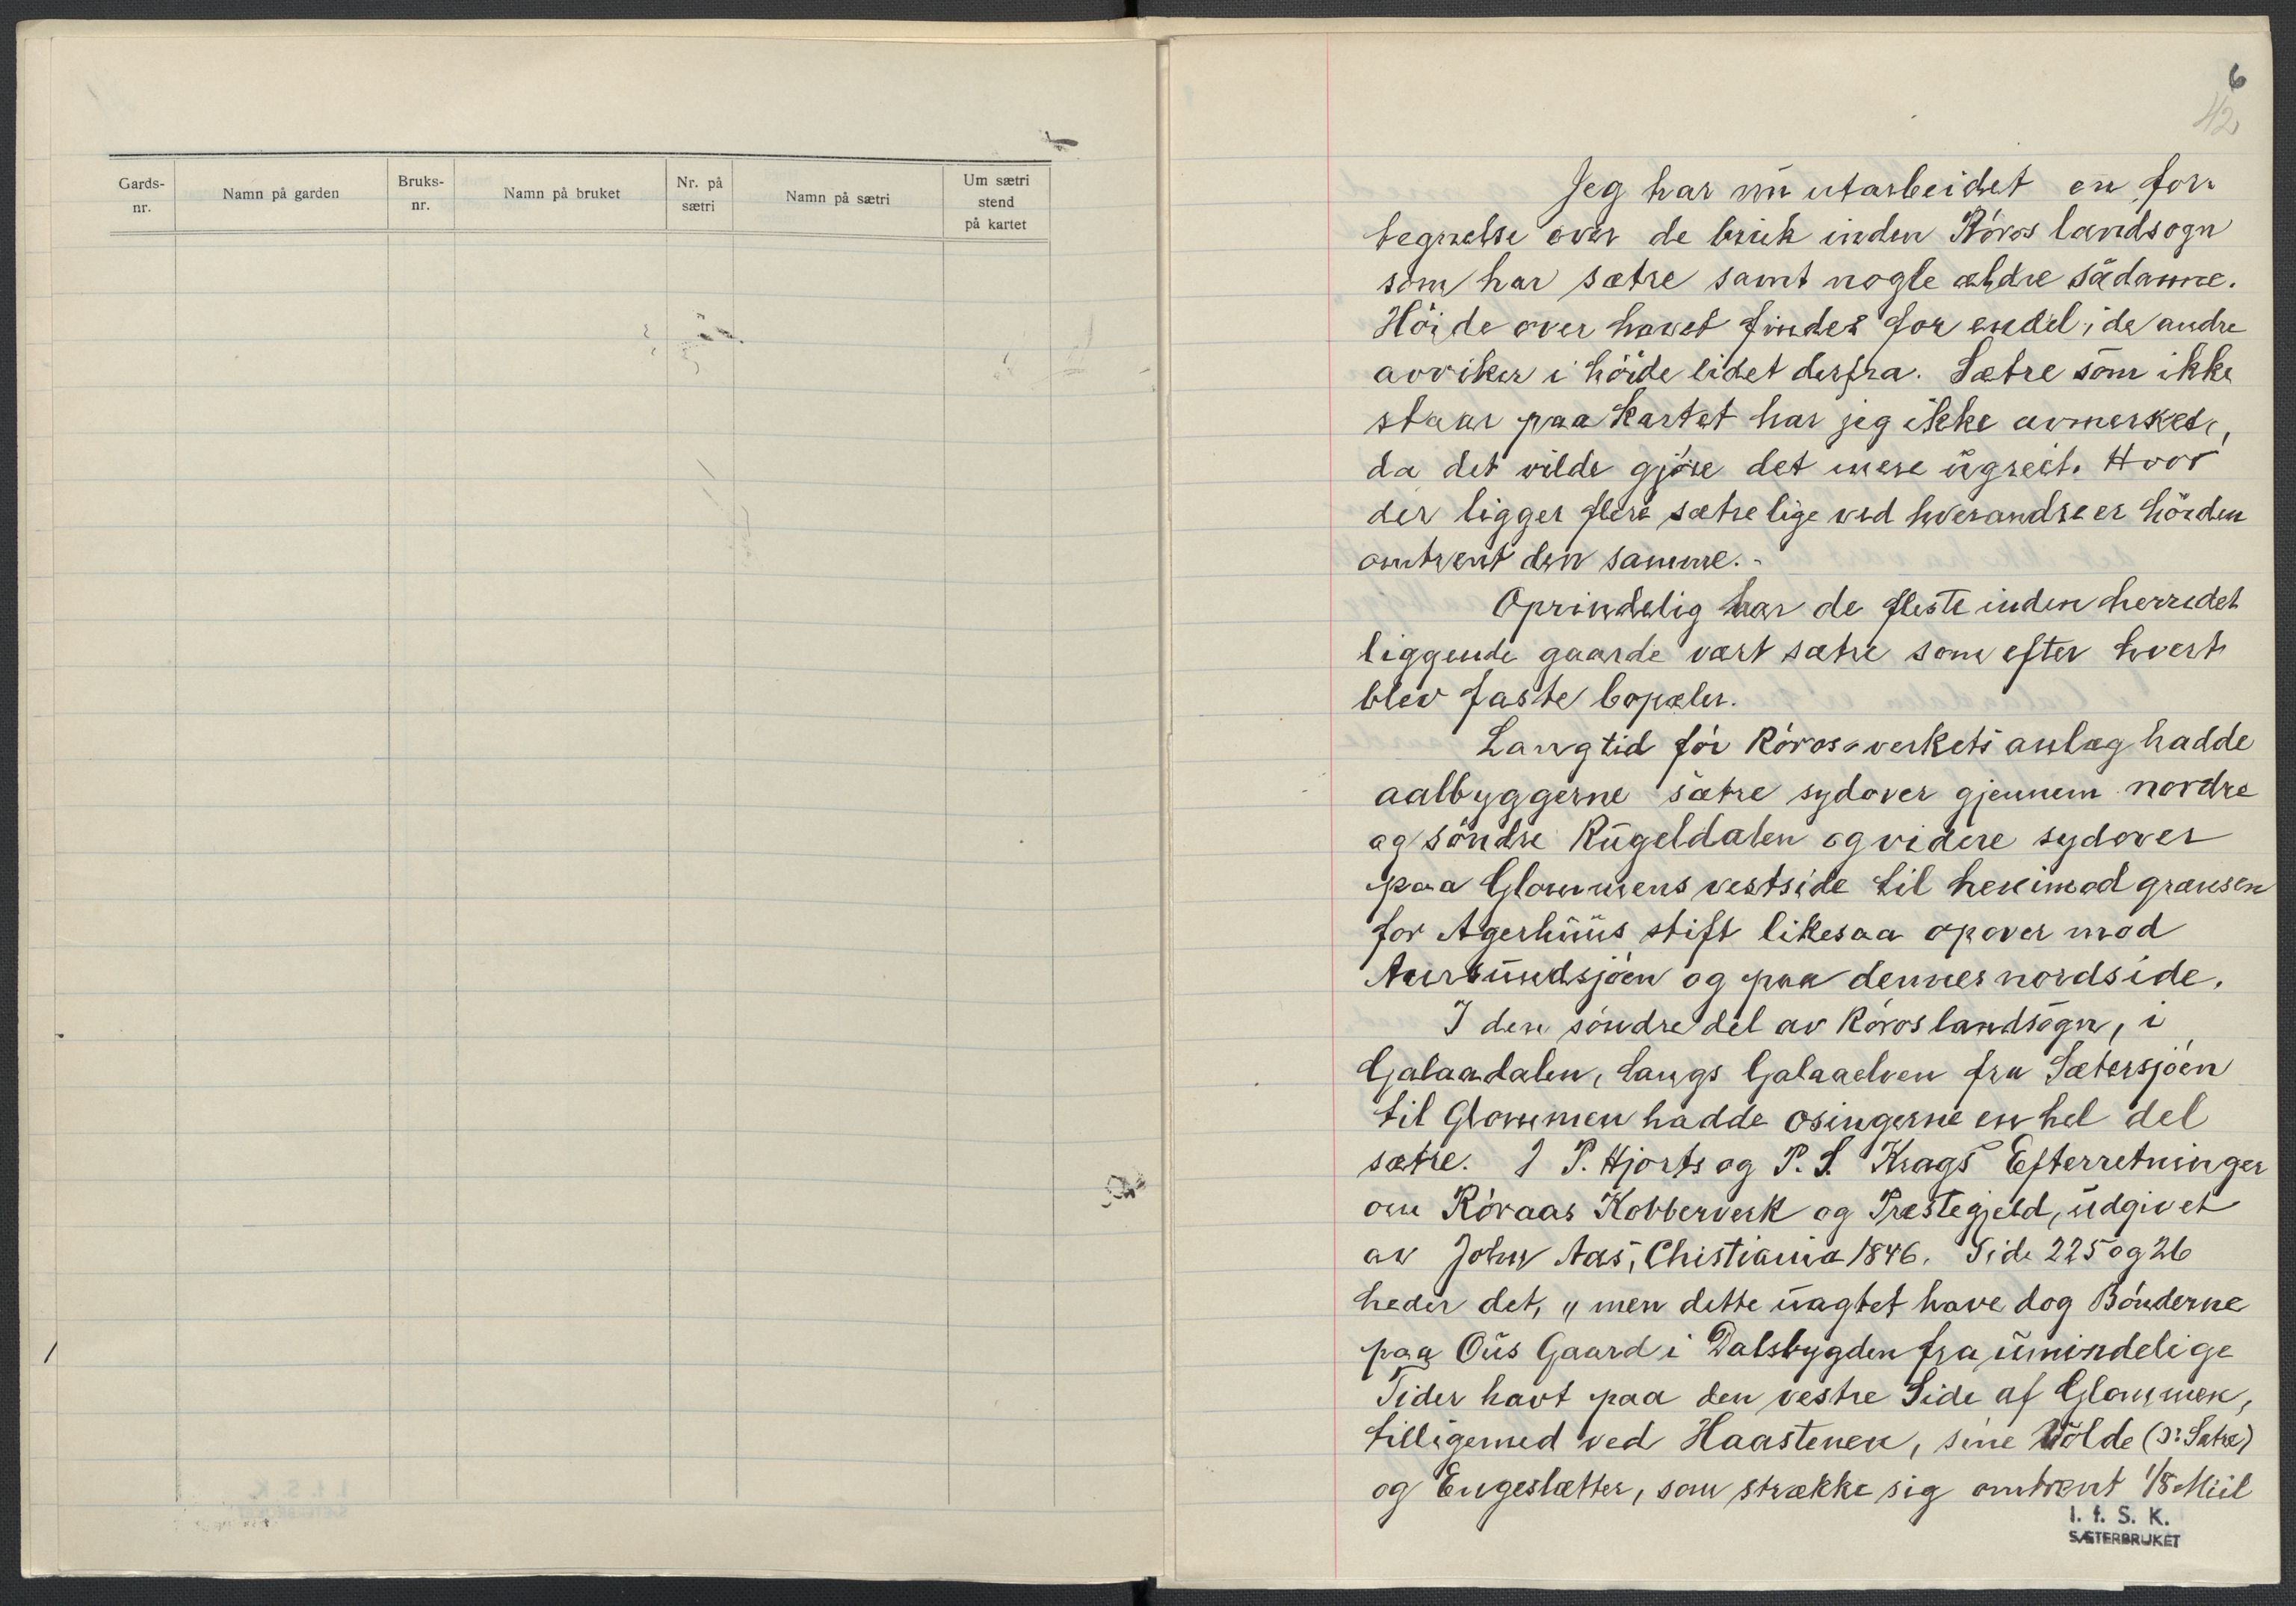 Gards-
nr.
Namn på garden
Bruks-
nr.
Namn på bruket
Nr. på
sætri
Namn på sætri
Um sætri
stend
på kartet
6
42
Jeg har nu utarbeidet en for-
tegnelse over de bruk inden Röros landsogn
som har sætre samt nogle ældre sådanne.
Höide over havet findes for endel, de andre
avviker i höide lidet derfra. Sætre som ikke
staar paa kartet har jeg ikke avmerket,
da det vilde gjöre det mere ugreit. Hvor
der ligger flere sætre lige ved hverandre er höiden
omtrent den samme.-
Oprindelig har de fleste inden herredet
liggende gaarde vært sætre som efter hvert
blev faste bopæler.
Lang tid för Röros-verkets anlæg hadde
aalbyggerne sætre sydover gjennem nordre
og söndre Rugeldalen og videre sydover
paa Glommens vestside til henimod grænsen
for Agerhuus stift likesaa opover mod
Aursundsjöen og paa dennes nordside.
I den söndre del av Röros landsogn, i
Galaadalen, langs Galaaelven fra Sætersjöen
til Glommen hadde osingerne en hel del
sætre. I P. Hjorts og P. S. Krags Efterretninger
om Röraas Kobberverk og Præstegjeld, udgivet
av John Aas, Chistiania 1846. Side 225 og 26
heder det, „men dette uagtet have dog Bönderne
paa Ous Gaard i Dalsbygden fra umindelige
Tider havt paa den vestre Side af Glommen,
tilligemed ved Haastenen, sine Volde (ɔ: Sætre)
og Engeslætter, som strække sig omtrent 1/8 Miil
I. f. S. K.
SÆTERBRUKET